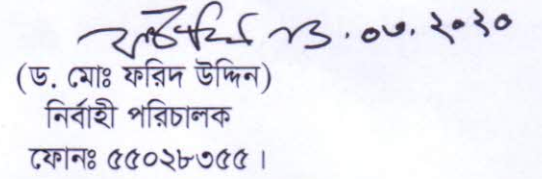 ২০২০
(ড. মোঃ ফরিদ উদ্দিন)
নির্বাহী পরিচালক
ফোনঃ ৫৫০২৮৩৫৫ ।